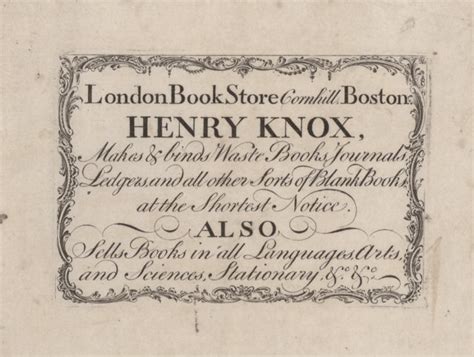 London Book Store Cornhill, Boston.
HENRY KNOX,
Makes & binds Waste Books, Journals,
Ledgers, and all other Sorts of Blank Books,
at the Shortest Notice.
ALSO
Sells Books in all Languages, Arts,
and Sciences, Stationary, &c. &c.